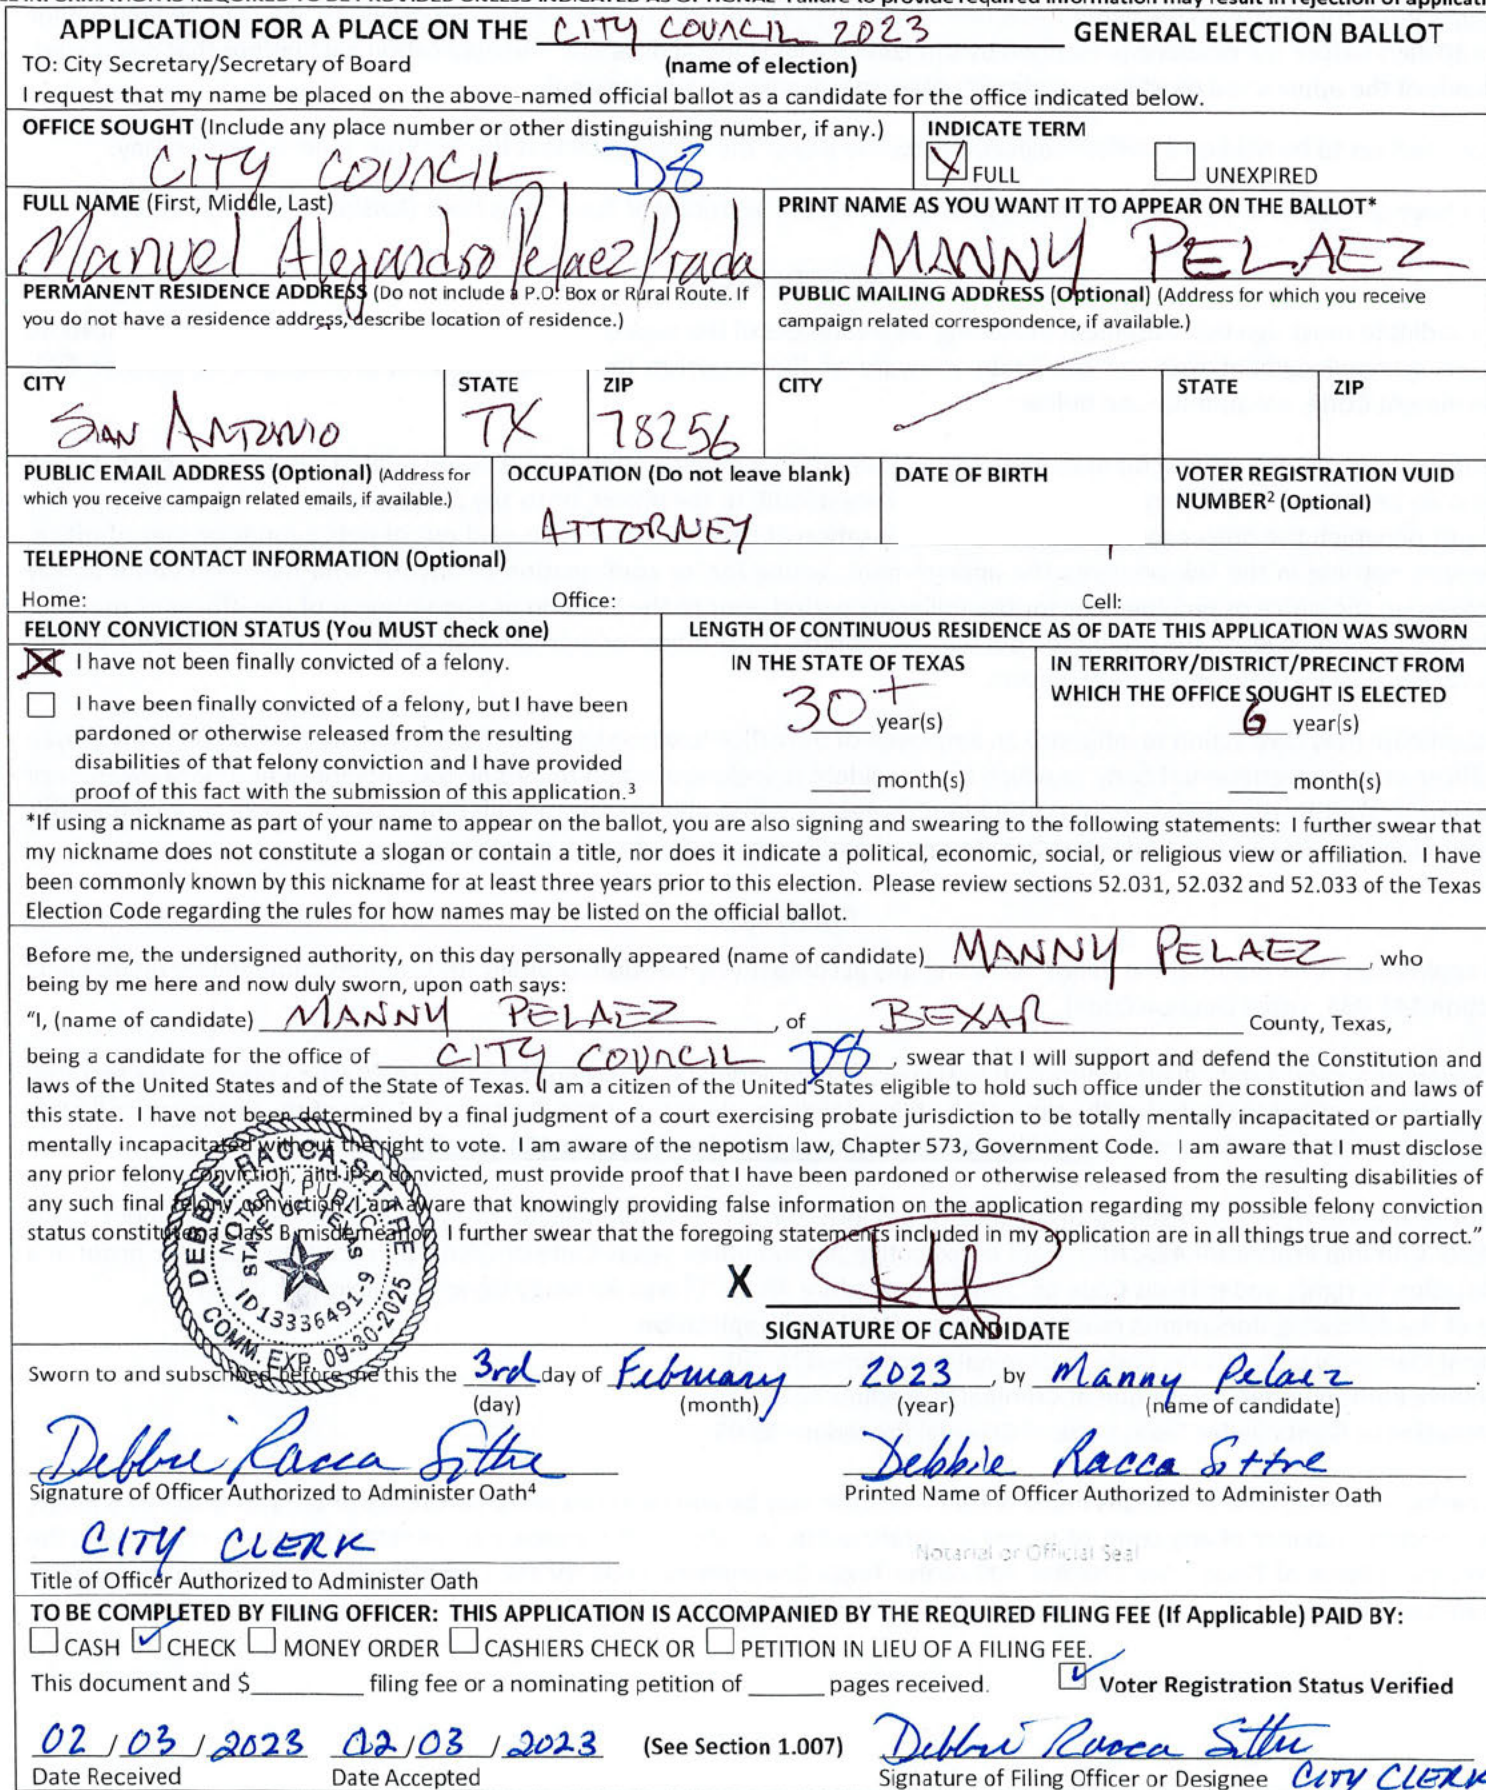 APPLICATION FOR A PLACE ON THE CITY COUNCIL 2023 GENERAL ELECTION BALLOT
TO: City Secretary/Secretary of Board (name of election)
I request that my name be placed on the above-named official ballot as a candidate for the office indicated below.
OFFICE SOUGHT (Include any place number or other distinguishing number, if any.)
CITY COUNCIL D8
INDICATE TERM
X FULL UNEXPIRED
FULL NAME (First, Middle, Last)
Manuel Alejandro Pelaez Prada
PRINT NAME AS YOU WANT IT TO APPEAR ON THE BALLOT*
MANNY PELAEZ
PERMANENT RESIDENCE ADDRESS (Do not include a P.O. Box or Rural Route. If
you do not have a residence address, describe location of residence.)
PUBLIC MAILING ADDRESS (Optional) (Address for which you receive
campaign related correspondence, if available.)
CITY STATE ZIP CITY STATE ZIP
SAN ANTONIO TX 78256
PUBLIC EMAIL ADDRESS (Optional) (Address for
which you receive campaign related emails, if available.)
OCCUPATION (Do not leave blank)
ATTORNEY
DATE OF BIRTH
VOTER REGISTRATION VUID
NUMBER² (Optional)
TELEPHONE CONTACT INFORMATION (Optional)
Home: Office: Cell:
FELONY CONVICTION STATUS (You MUST check one)
X I have not been finally convicted of a felony.
I have been finally convicted of a felony, but I have been
pardoned or otherwise released from the resulting
disabilities of that felony conviction and I have provided
proof of this fact with the submission of this application.³
LENGTH OF CONTINUOUS RESIDENCE AS OF DATE THIS APPLICATION WAS SWORN
IN THE STATE OF TEXAS
30+ year(s)
month(s)
IN TERRITORY/DISTRICT/PRECINCT FROM
WHICH THE OFFICE SOUGHT IS ELECTED
6 year(s)
month(s)
*If using a nickname as part of your name to appear on the ballot, you are also signing and swearing to the following statements: I further swear that
my nickname does not constitute a slogan or contain a title, nor does it indicate a political, economic, social, or religious view or affiliation. I have
been commonly known by this nickname for at least three years prior to this election. Please review sections 52.031, 52.032 and 52.033 of the Texas
Election Code regarding the rules for how names may be listed on the official ballot.
Before me, the undersigned authority, on this day personally appeared (name of candidate) MANNY PELAEZ, who
being by me here and now duly sworn, upon oath says:
"I, (name of candidate) MANNY PELAEZ, of BEXAR County, Texas,
being a candidate for the office of CITY COUNCIL D8, swear that I will support and defend the Constitution and
laws of the United States and of the State of Texas. I am a citizen of the United States eligible to hold such office under the constitution and laws of
this state. I have not been determined by a final judgment of a court exercising probate jurisdiction to be totally mentally incapacitated or partially
mentally incapacitated without the right to vote. I am aware of the nepotism law, Chapter 573, Government Code. I am aware that I must disclose
any prior felony conviction, and if so convicted, must provide proof that I have been pardoned or otherwise released from the resulting disabilities of
any such final felony conviction. I am aware that knowingly providing false information on the application regarding my possible felony conviction
status constitutes a Class B misdemeanor. I further swear that the foregoing statements included in my application are in all things true and correct."
DEBBIE RACCA-SITTRE
NOTARY PUBLIC
STATE OF TEXAS
ID 13336491-9
COMM. EXP. 09-30-2025
X
SIGNATURE OF CANDIDATE
Sworn to and subscribed before me this the 3rd day of February, 2023, by Manny Pelaez.
(day) (month) (year) (name of candidate)
Debbie Racca Sittre Debbie Racca Sittre
Signature of Officer Authorized to Administer Oath⁴ Printed Name of Officer Authorized to Administer Oath
CITY CLERK
Notarial or Official Seal
Title of Officer Authorized to Administer Oath
TO BE COMPLETED BY FILING OFFICER: THIS APPLICATION IS ACCOMPANIED BY THE REQUIRED FILING FEE (If Applicable) PAID BY:
CASH ✓ CHECK MONEY ORDER CASHIERS CHECK OR PETITION IN LIEU OF A FILING FEE.
This document and $ filing fee or a nominating petition of pages received. ✓ Voter Registration Status Verified
02/03/2023 02/03/2023 (See Section 1.007) Debbie Racca Sittre
Date Received Date Accepted Signature of Filing Officer or Designee CITY CLERK